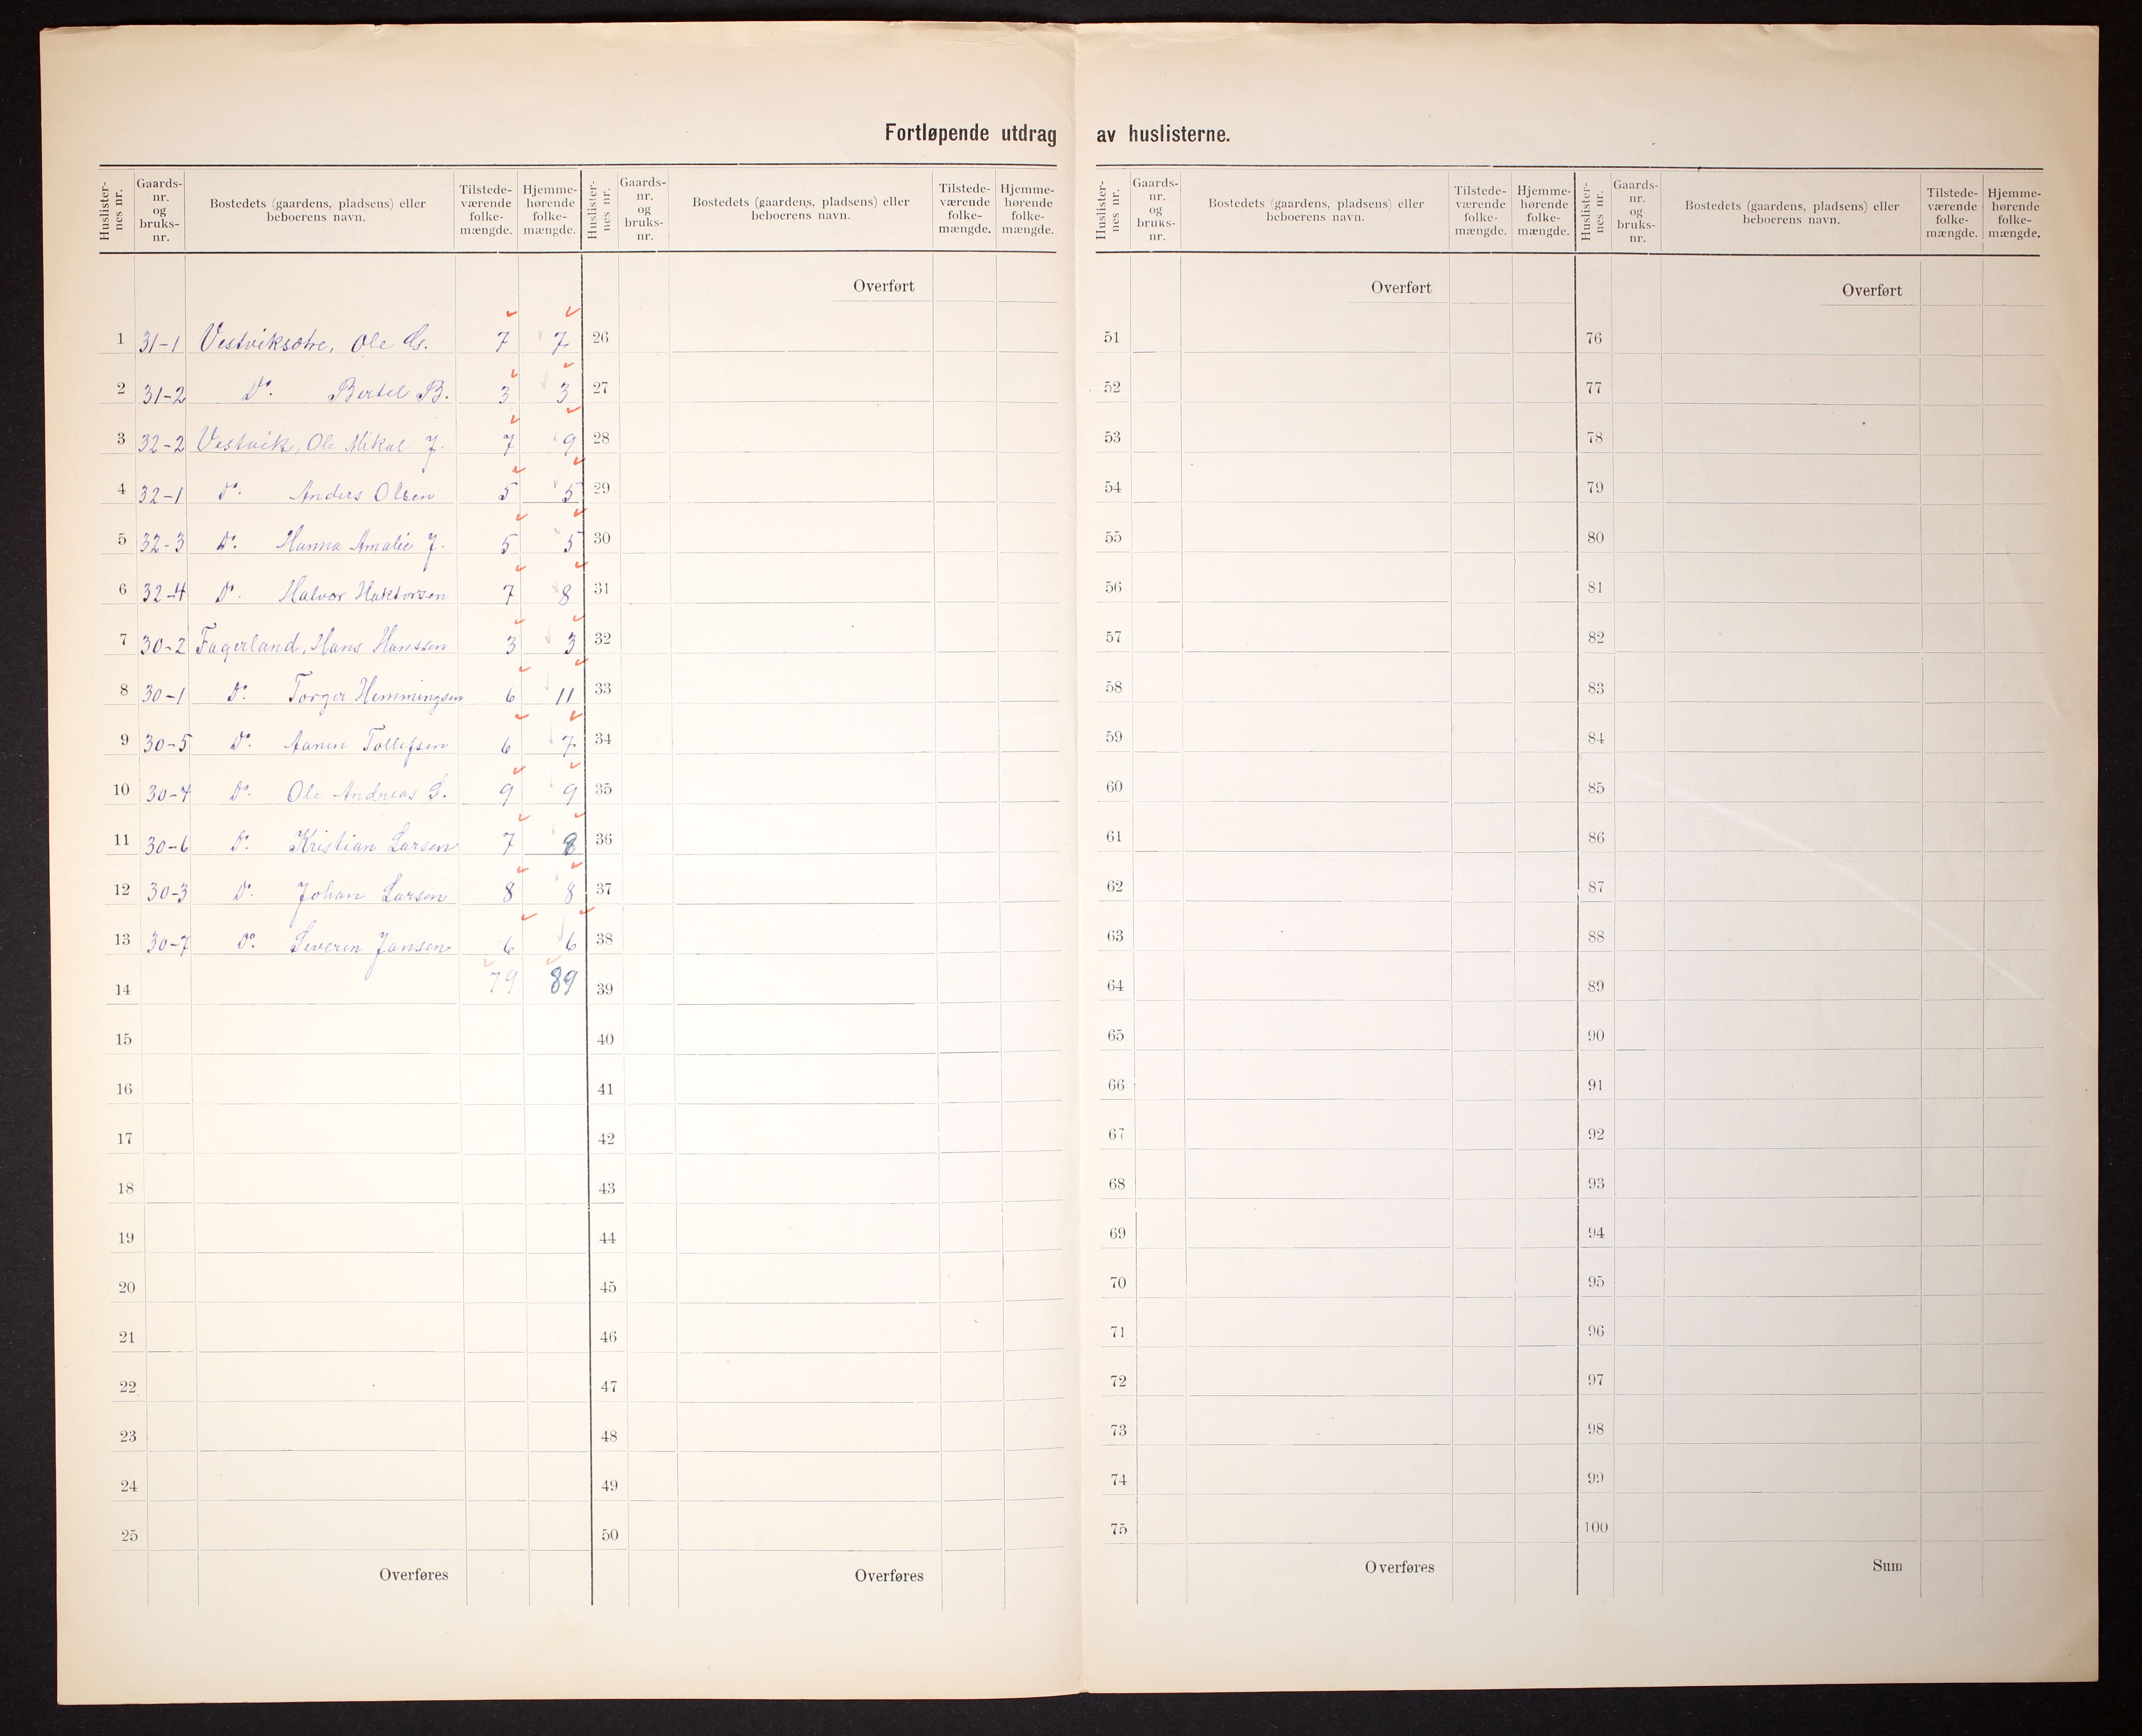 Fortløpende utdrag av huslisterne.
Huslisternes nr. Gaards-nr. og bruks-nr. Bostedets (gaardens, pladsens) eller beboerens navn. Tilstede-værende folke-mængde. Hjemme-hørende folke-mængde.
1 31-1 Vestviksøtre, Ole G. 7 7
2 31-2 Do. Bertel B. 3 3
3 32-2 Vestvik, Ole Mikal J. 7 9
4 32-1 Do. Anders Olsen 5 5
5 32-3 Do. Hanna Amalie J. 5 5
6 32-4 Do. Halvor Haktorsen 7 8
7 30-2 Fagerland, Hans Hanssen 3 3
8 30-1 Do. Torger Hemmingsen 6 11
9 30-5 Do. Aanen Tollefsen 6 7
10 30-4 Do. Ole Andreas S. 9 9
11 30-6 Do. Kristian Larsen 7 8
12 30-3 Do. Johan Larsen 8 8
13 30-7 Do. Severin Jansen 6 6
14 79 89
15
16
17
18
19
20
21
22
23
24
25
Overføres
Huslisternes nr. Gaards-nr. og bruks-nr. Bostedets (gaardens, pladsens) eller beboerens navn. Tilstede-værende folke-mængde. Hjemme-hørende folke-mængde.
Overført
26
27
28
29
30
31
32
33
34
35
36
37
38
39
40
41
42
43
44
45
46
47
48
49
50
Overføres
Huslisternes nr. Gaards-nr. og bruks-nr. Bostedets (gaardens, pladsens) eller beboerens navn. Tilstede-værende folke-mængde. Hjemme-hørende folke-mængde.
Overført
51
52
53
54
55
56
57
58
59
60
61
62
63
64
65
66
67
68
69
70
71
72
73
74
75
Overføres
Huslisternes nr. Gaards-nr. og bruks-nr. Bostedets (gaardens, pladsens) eller beboerens navn. Tilstede-værende folke-mængde. Hjemme-hørende folke-mængde.
Overført
76
77
78
79
80
81
82
83
84
85
86
87
88
89
90
91
92
93
94
95
96
97
98
99
100
Sum